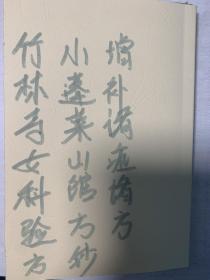 增补诸症诸方
小蓬莱山馆方抄
竹林寺女科验方